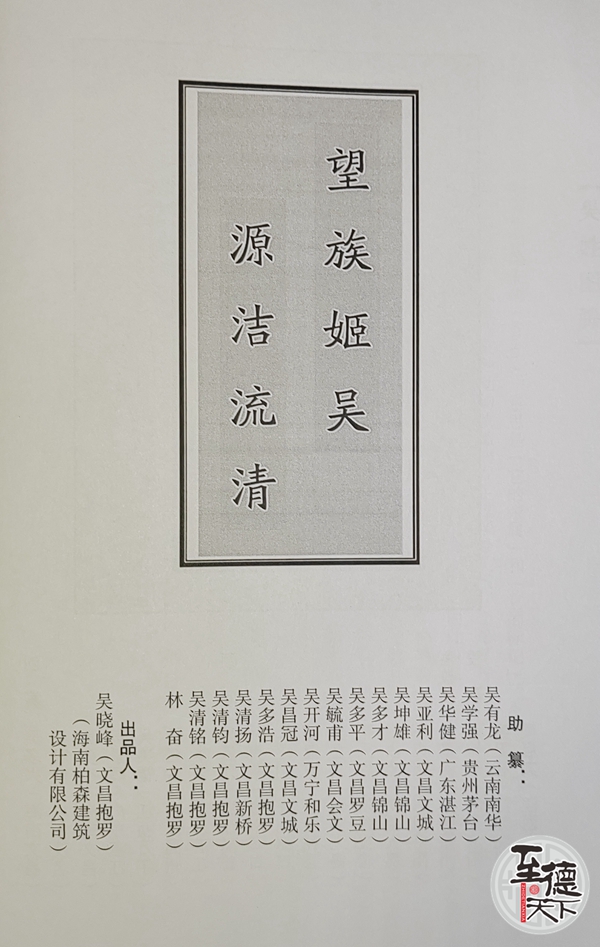 望族姬吴
源洁流清
助纂：
吴有龙（云南南华）
吴学强（贵州茅台）
吴华健（广东湛江）
吴亚利（文昌文城）
吴坤雄（文昌锦山）
吴多才（文昌锦山）
吴多平（文昌罗豆）
吴毓甫（文昌会文）
吴开河（万宁和乐）
吴昌冠（文昌文城）
吴多浩（文昌抱罗）
吴清扬（文昌新桥）
吴清钧（文昌抱罗）
吴清铭（文昌抱罗）
林奋（文昌抱罗）
出品人：
吴晓峰（文昌抱罗）
（海南柏森建筑
设计有限公司）
至德天下